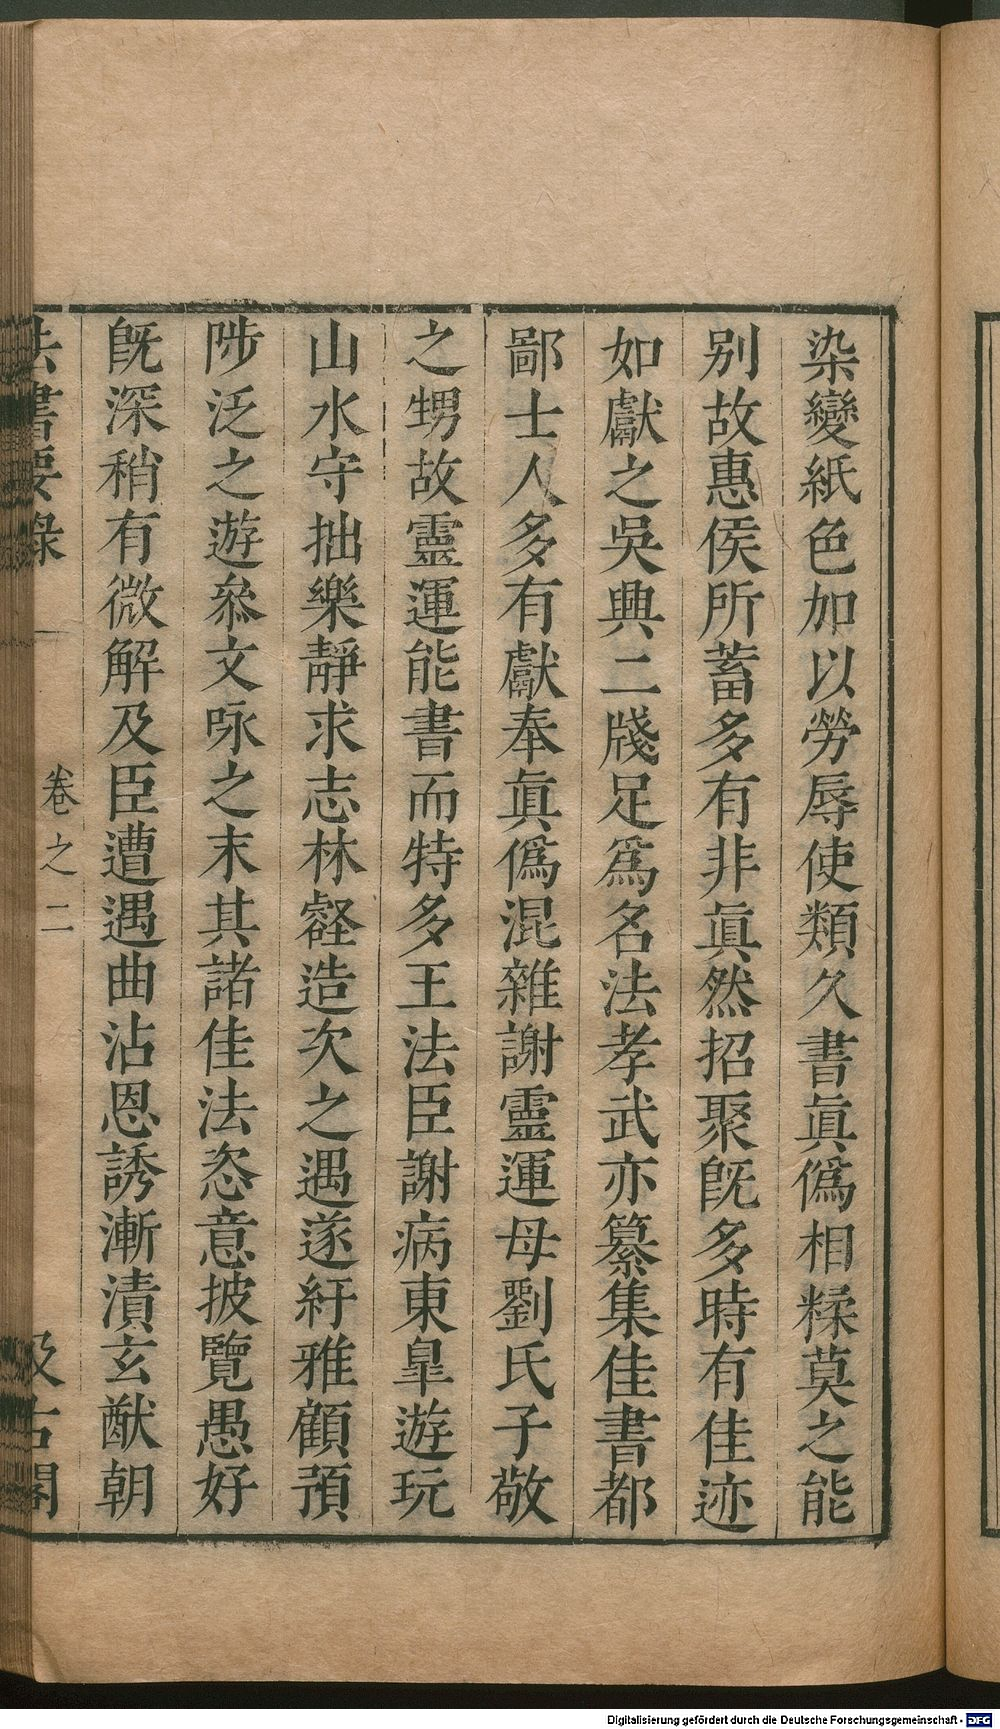 染變紙色加以勞辱使類久書眞僞相糅莫之能
别故惠侯所蓄多有非眞然招聚旣多時有佳迹
如獻之吳興二牋足爲名法孝武亦纂集佳書都
鄙士人多有獻奉眞僞混雜謝靈運母劉氏子敬
之甥故靈運能書而特多王法臣謝病東皐遊玩
山水守拙樂靜求志林壑造次之遇遂紆雅顧預
陟泛之遊叅文咏之末其諸佳法恣意披覽愚好
旣深稍有微解及臣遭遇曲沾恩誘漸漬玄猷朝
法書要錄
卷之二
汲古閣
Digitalisierung gefördert durch die Deutsche Forschungsgemeinschaft - DFG